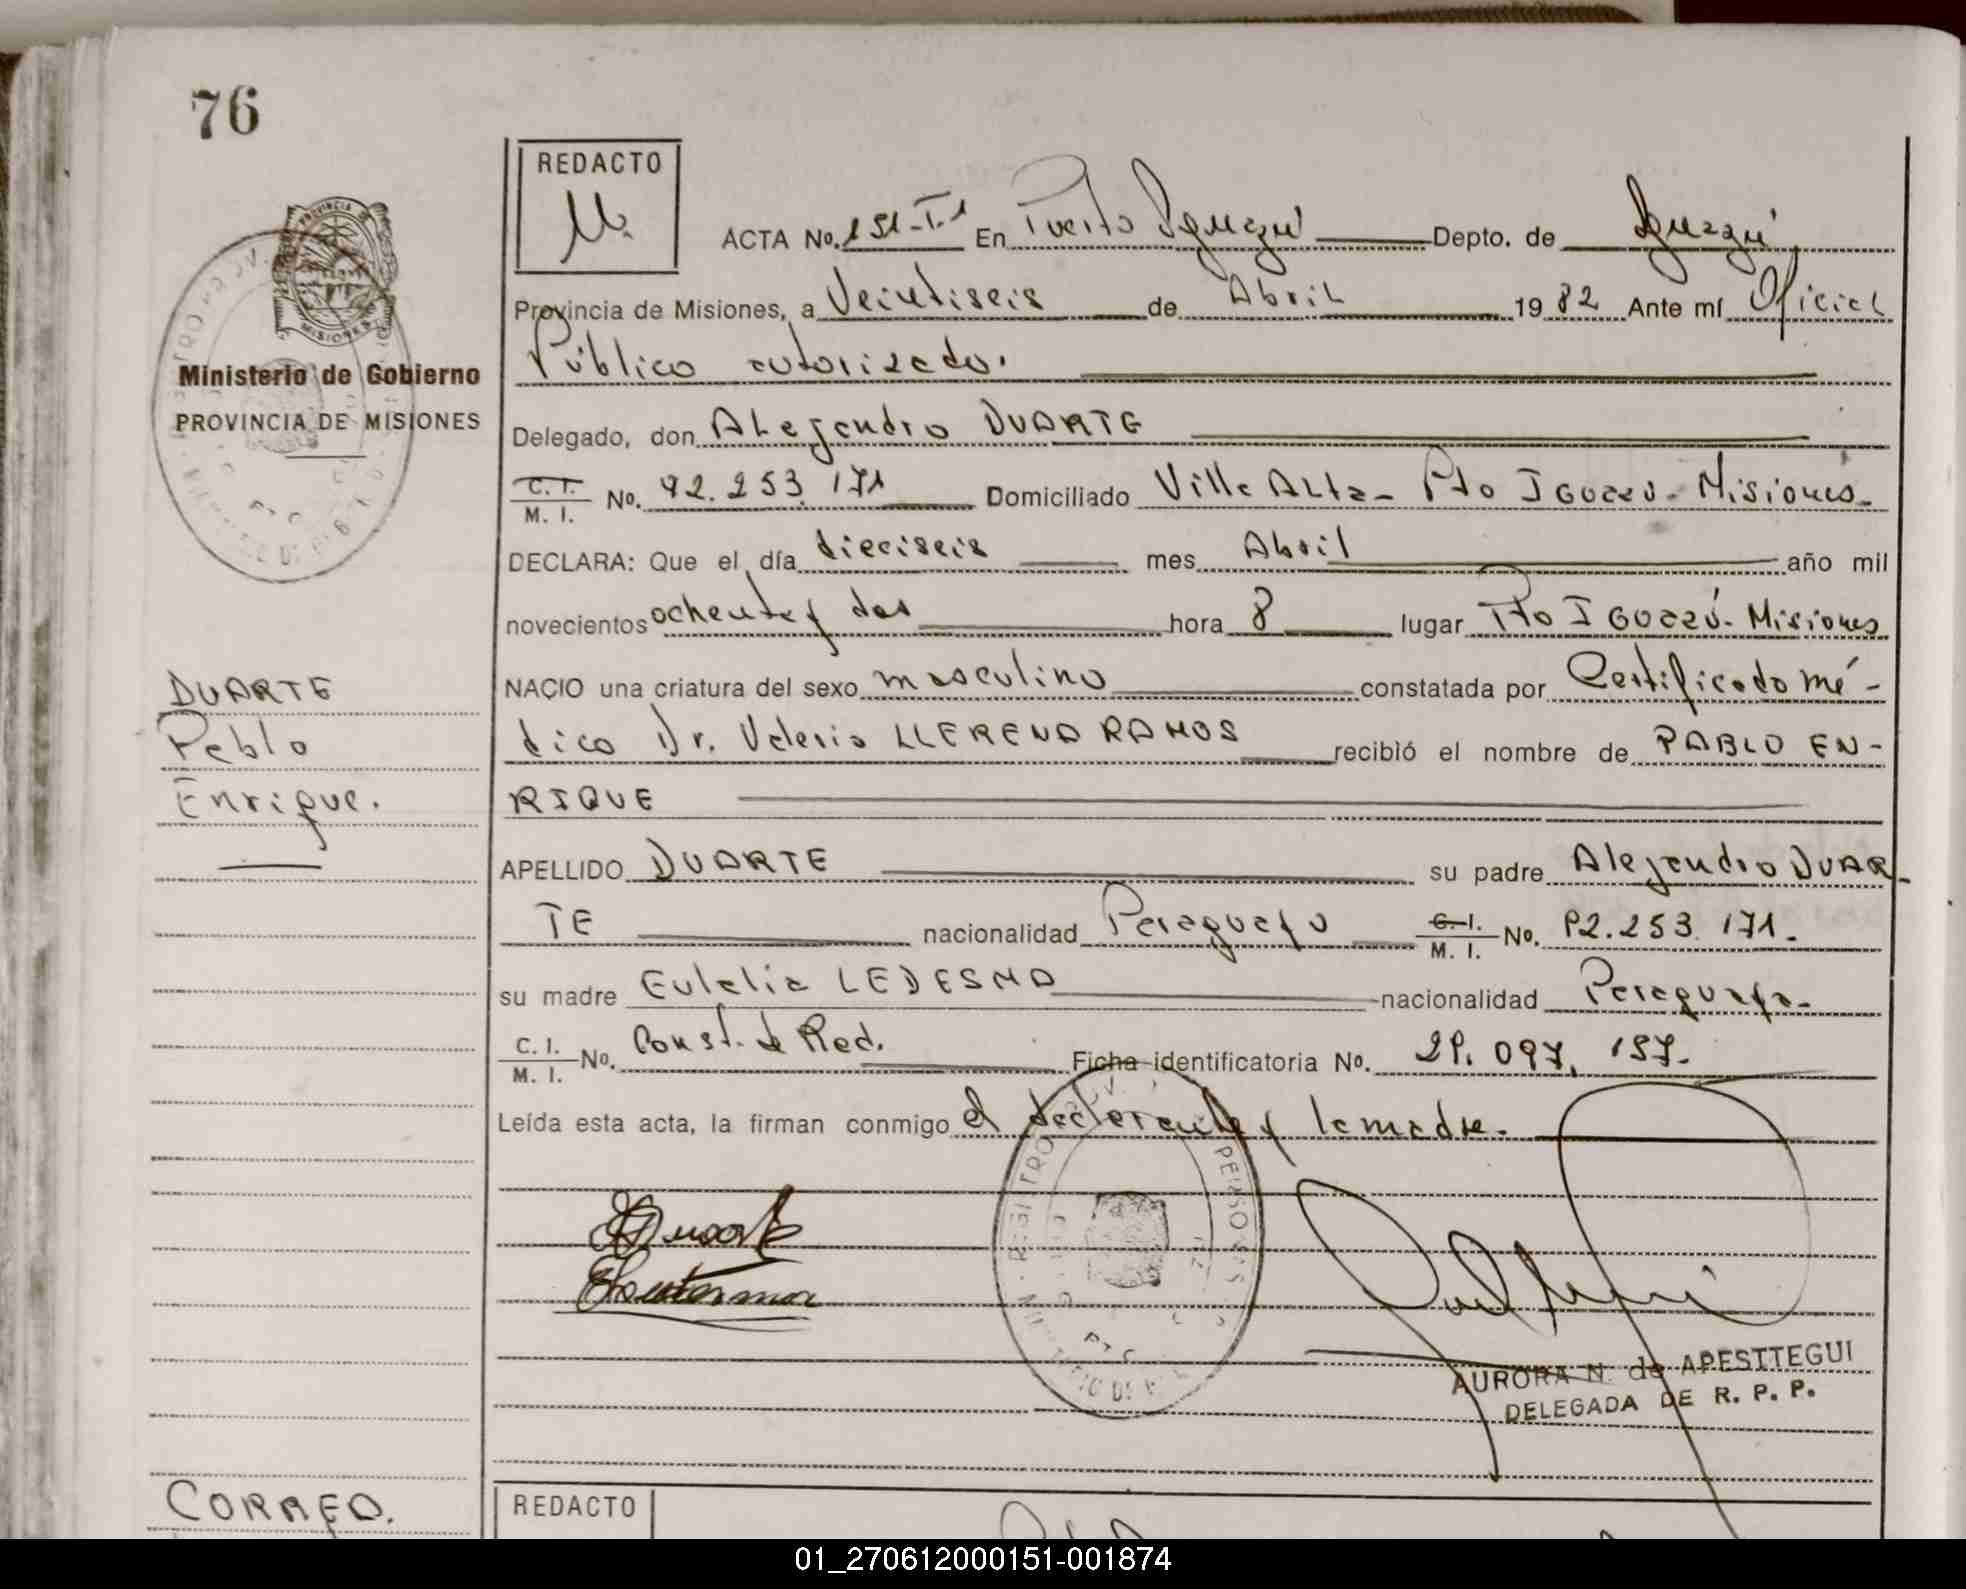 76
REDACTO
ACTA No. 151-T.1 En Puerto Iguazú Depto. de Iguazú
Provincia de Misiones, a Veintiseis de Abril 1982 Ante mí Oficial
Público autorizado.
Ministerio de Gobierno
PROVINCIA DE MISIONES
Delegado, don Alejandro DUARTE
C. I. M. I. No. 92.253.171 Domiciliado Villa Alta - Pto IGUAZÚ - Misiones-
DECLARA: Que el día dieciseis mes Abril año mil
novecientos ochenta y dos hora 8 lugar Pto IGUAZÚ - Misiones
NACIO una criatura del sexo masculino constatada por Certificado mé-
dico Dr. Valerio LLERENA RAMOS recibió el nombre de PABLO EN-
RIQUE
DUARTE
Pablo
Enrique.
APELLIDO DUARTE su padre Alejandro DUAR-
TE nacionalidad Paraguayo C. I. M. I. No. 92.253.171.
su madre Eulalia LEDESMA nacionalidad Paraguaya-
C. I. M. I. No. Const. de Rad. Ficha identificatoria No. 29.097.157-
Leída esta acta, la firman conmigo el declarante y la madre.
AURORA N. de APESTTEGUI
DELEGADA DE R. P. P.
CORREO.
REDACTO
01_270612000151-001874